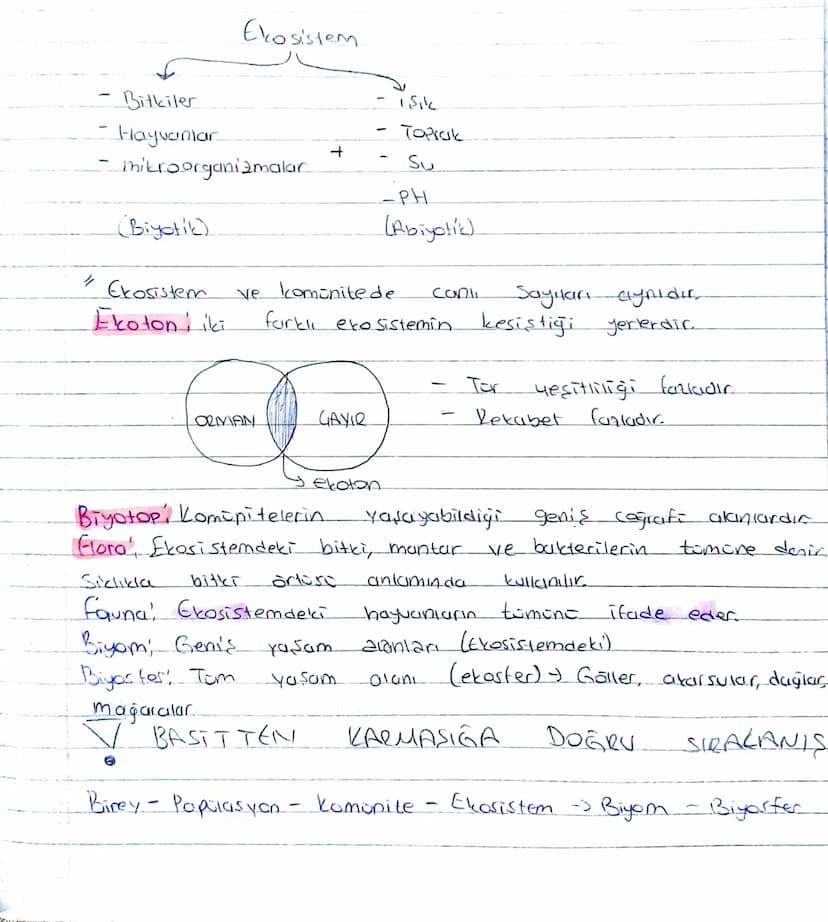 Ekosistem
- Bitkiler
- Hayvanlar
- mikroorganizmalar
(Biyotik)
+
- ışık
- Toprak
- Su
- PH
(Abiyotik)
" Ekosistem ve komünitede canlı sayıları aynıdır.
Ekoton; iki farklı ekosistemin kesiştiği yerlerdir.
ORMAN ÇAYIR
ekoton
- Tür çeşitliliği fazladır.
- Rekabet fazladır.
Biyotop; Komünitelerin yaşayabildiği geniş coğrafi alanlardır
Flora; Ekosistemdeki bitki, mantar ve bakterilerin tümüne denir
Sıklıkla bitki örtüsü anlamında kullanılır.
Fauna; Ekosistemdeki hayvanların tümünü ifade eder.
Biyom; Geniş yaşam alanları (Ekosistemdeki)
Biyosfer; Tüm yaşam alanı (ekosfer) → Göller, akarsular, dağlar,
mağaralar
! BASİTTEN KARMAŞIĞA DOĞRU SIRALANIŞ
Birey - Popülasyon - Komünite - Ekosistem → Biyom - Biyosfer